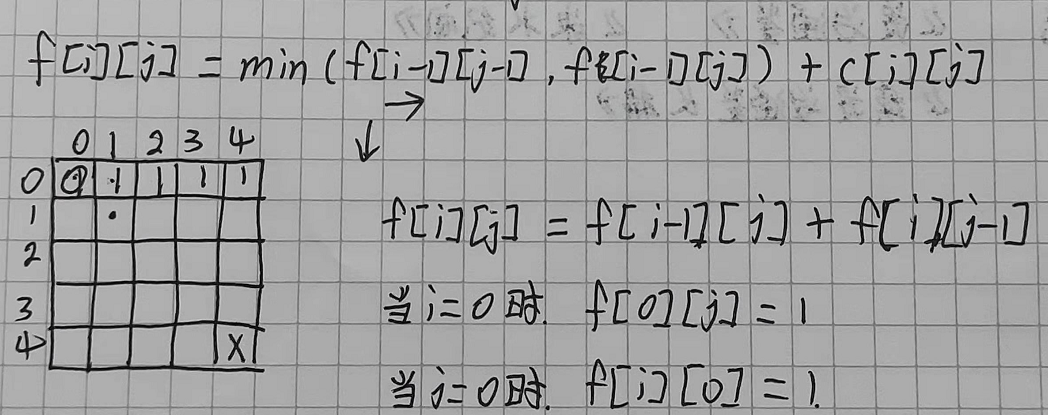 f[i][j] = min(f[i-1][j-1], f[i-1][j]) + c[i][j]
→
↓
0 1 2 3 4
0 0 1 1 1 1
1
2
3
4 X
f[i][j] = f[i-1][j] + f[i][j-1]
当i=0时. f[0][j] = 1
当j=0时. f[i][0] = 1.